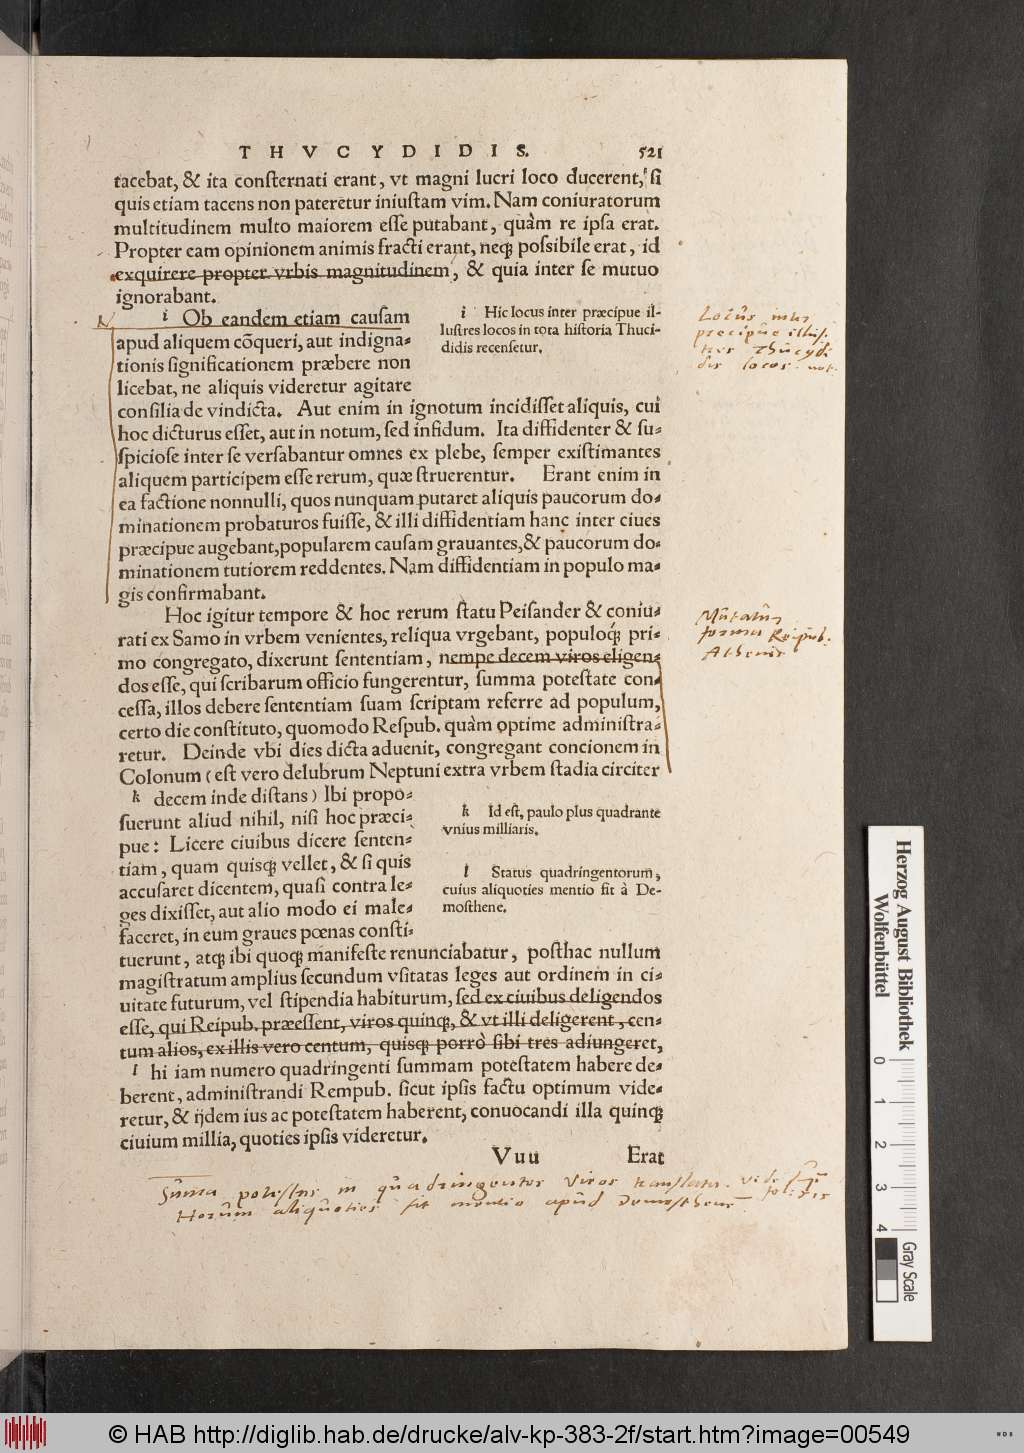 THVCYDIDIS. 521
tacebat, & ita consternati erant, vt magni lucri loco ducerent, si
quis etiam tacens non pateretur iniustam vim. Nam coniuratorum
multitudinem multo maiorem esse putabant, quàm re ipsa erat.
Propter eam opinionem animis fracti erant, neqꝫ possibile erat, id
exquirere propter vrbis magnitudinem, & quia inter se mutuo
ignorabant.
i Ob eandem etiam causam
apud aliquem cōqueri, aut indigna-
tionis significationem præbere non
licebat, ne aliquis videretur agitare
i Hic locus inter præcipue il-
lustres locos in tota historia Thuci-
didis recensetur.
Locus inter
præcipue illus-
tres Thucydi
dis locos. not.
consilia de vindicta. Aut enim in ignotum incidisset aliquis, cui
hoc dicturus esset, aut in notum, sed infidum. Ita diffidenter & su-
spiciose inter se versabantur omnes ex plebe, semper existimantes
aliquem participem esse rerum, quæ struerentur. Erant enim in
ea factione nonnulli, quos nunquam putaret aliquis paucorum do-
minationem probaturos fuisse, & illi diffidentiam hanc inter ciues
præcipue augebant, popularem causam grauantes, & paucorum do-
minationem tutiorem reddentes. Nam diffidentiam in populo ma-
gis confirmabant.
Hoc igitur tempore & hoc rerum statu Peisander & coniu-
rati ex Samo in vrbem venientes, reliqua vrgebant, populoqꝫ pri-
mo congregato, dixerunt sententiam, nempe decem viros eligen-
dos esse, qui scribarum officio fungerentur, summa potestate con-
cessa, illos debere sententiam suam scriptam referre ad populum,
certo die constituto, quomodo Respub. quàm optime administra-
retur. Deinde vbi dies dicta aduenit, congregant concionem in
Colonum (est vero delubrum Neptuni extra vrbem stadia circiter
Mutatur
forma Reipub.
Athenis
k decem inde distans) Ibi propo-
suerunt aliud nihil, nisi hoc præci-
pue: Licere ciuibus dicere senten-
tiam, quam quisqꝫ vellet, & si quis
accusaret dicentem, quasi contra le-
ges dixisset, aut alio modo ei male-
faceret, in eum graues pœnas consti-
k Id est, paulo plus quadrante
vnius milliaris.
l Status quadringentorum,
cuius aliquoties mentio fit à De-
mosthene.
tuerunt, atqꝫ ibi quoqꝫ manifeste renunciabatur, posthac nullum
magistratum amplius secundum vsitatas leges aut ordinem in ci-
uitate futurum, vel stipendia habiturum, sed ex ciuibus deligendos
esse, qui Reipub. præessent, viros quinqꝫ, & vt illi deligerent, cen-
tum alios, ex illis vero centum, quisqꝫ porrò sibi tres adiungeret,
l hi iam numero quadringenti summam potestatem habere de-
berent, administrandi Rempub. sicut ipsis factu optimum vide-
retur, & ijdem ius ac potestatem haberent, conuocandi illa quinqꝫ
ciuium millia, quoties ipsis videretur.
Vuu Erat
Summa potestas in quadringentos viros translata. vide
Horum aliquoties fit mentio apud Demosthenem
Herzog August Bibliothek
Wolfenbüttel
0 1 2 3 4
Gray Scale
© HAB http://diglib.hab.de/drucke/alv-kp-383-2f/start.htm?image=00549